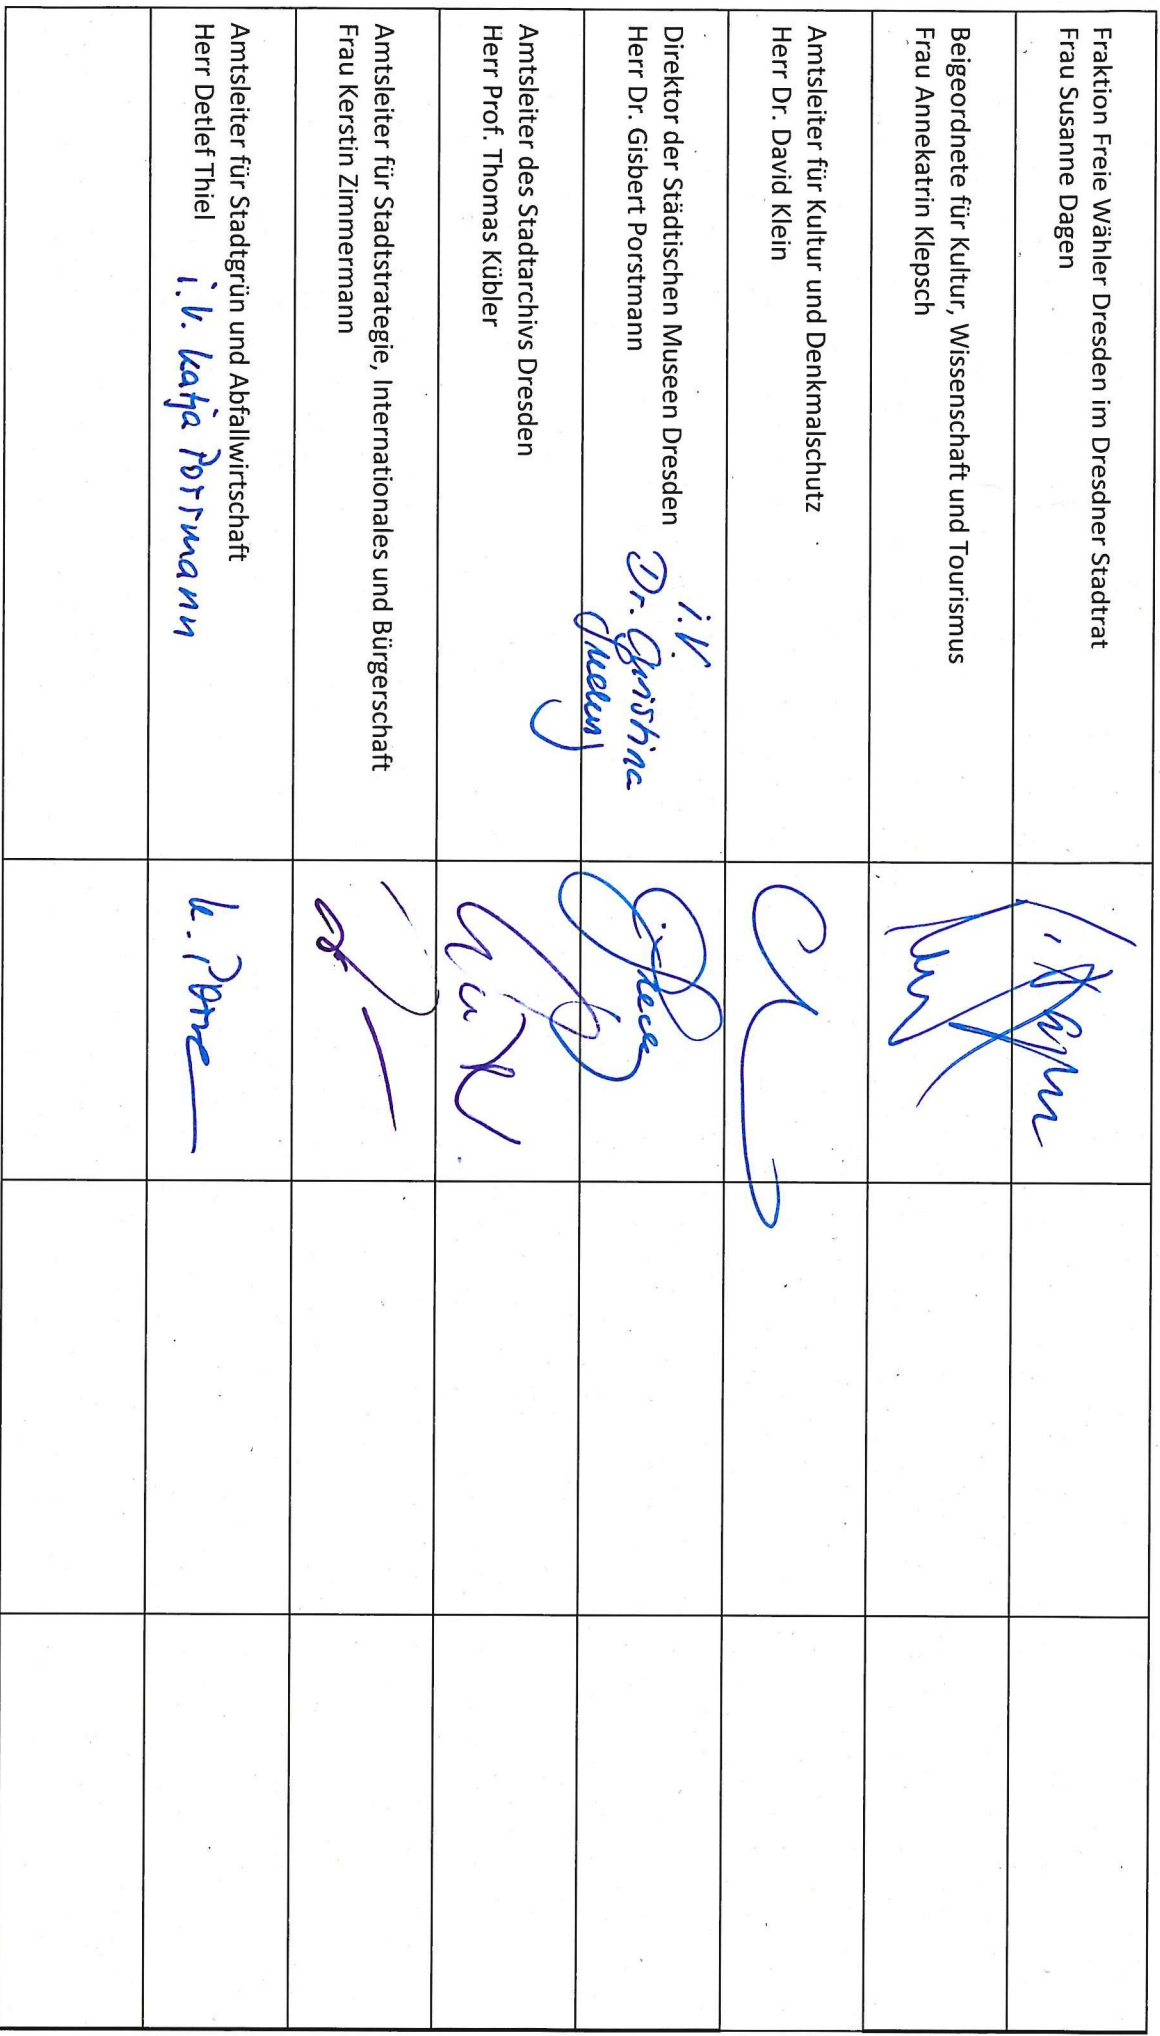 Fraktion Freie Wähler Dresden im Dresdner Stadtrat
Frau Susanne Dagen
Beigeordnete für Kultur, Wissenschaft und Tourismus
Frau Annekatrin Klepsch
Amtsleiter für Kultur und Denkmalschutz
Herr Dr. David Klein
Direktor der Städtischen Museen Dresden
Herr Dr. Gisbert Porstmann
i.V.
Dr. Christina
Amtsleiter des Stadtarchivs Dresden
Herr Prof. Thomas Kübler
Amtsleiter für Stadtstrategie, Internationales und Bürgerschaft
Frau Kerstin Zimmermann
Amtsleiter für Stadtgrün und Abfallwirtschaft
Herr Detlef Thiel
i.V. Katja Porrmann